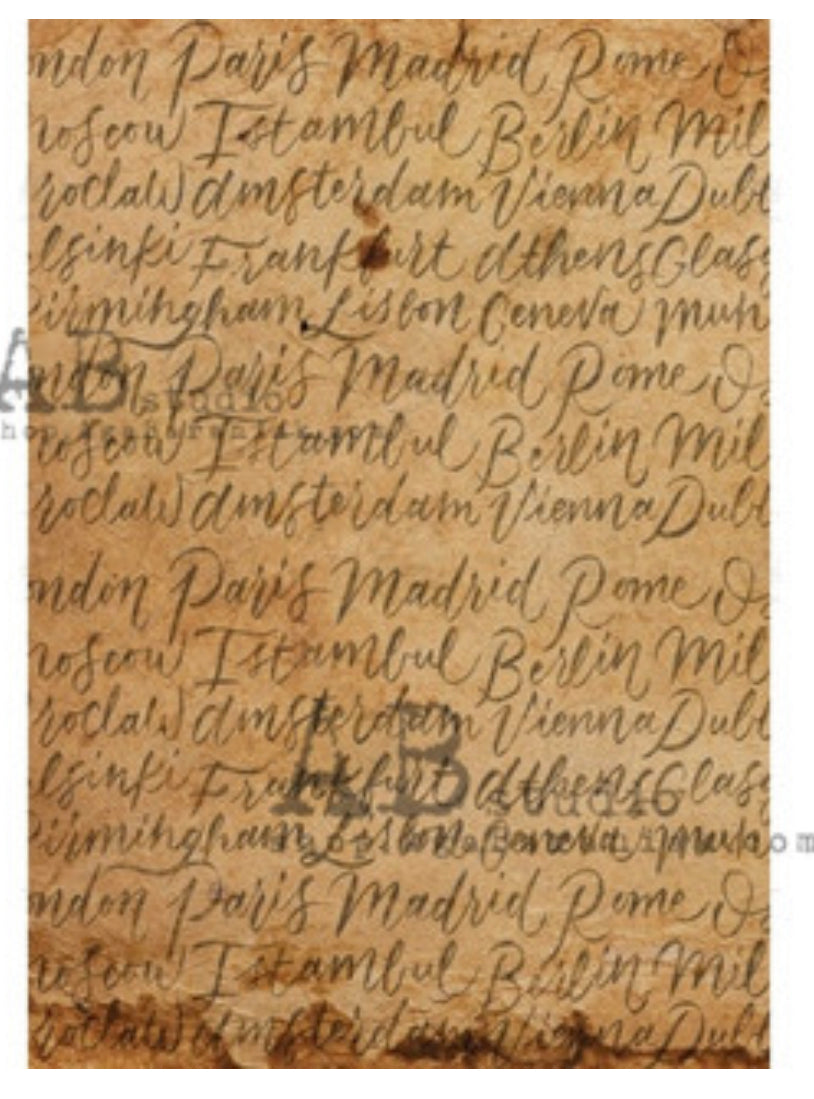 ndon Paris Madrid Rome O
noscow Istambul Berlin Mil
roclaw Amsterdam Vienna Dubl
lsinki Frankfurt Athens Glasg
irmingham Lisbon Geneva Mun
ndon Paris Madrid Rome Os
AB studio
noscow Istambul Berlin Mil
roclaw Amsterdam Vienna Dubl
ndon Paris Madrid Rome Os
noscow Istambul Berlin Mil
roclaw Amsterdam Vienna Dubl
lsinki Frankfurt Athens Glasg
AB studio
irmingham Lisbon Geneva Mun
ndon Paris Madrid Rome Os
noscow Istambul Berlin Mil
roclaw Amsterdam Vienna Dubl